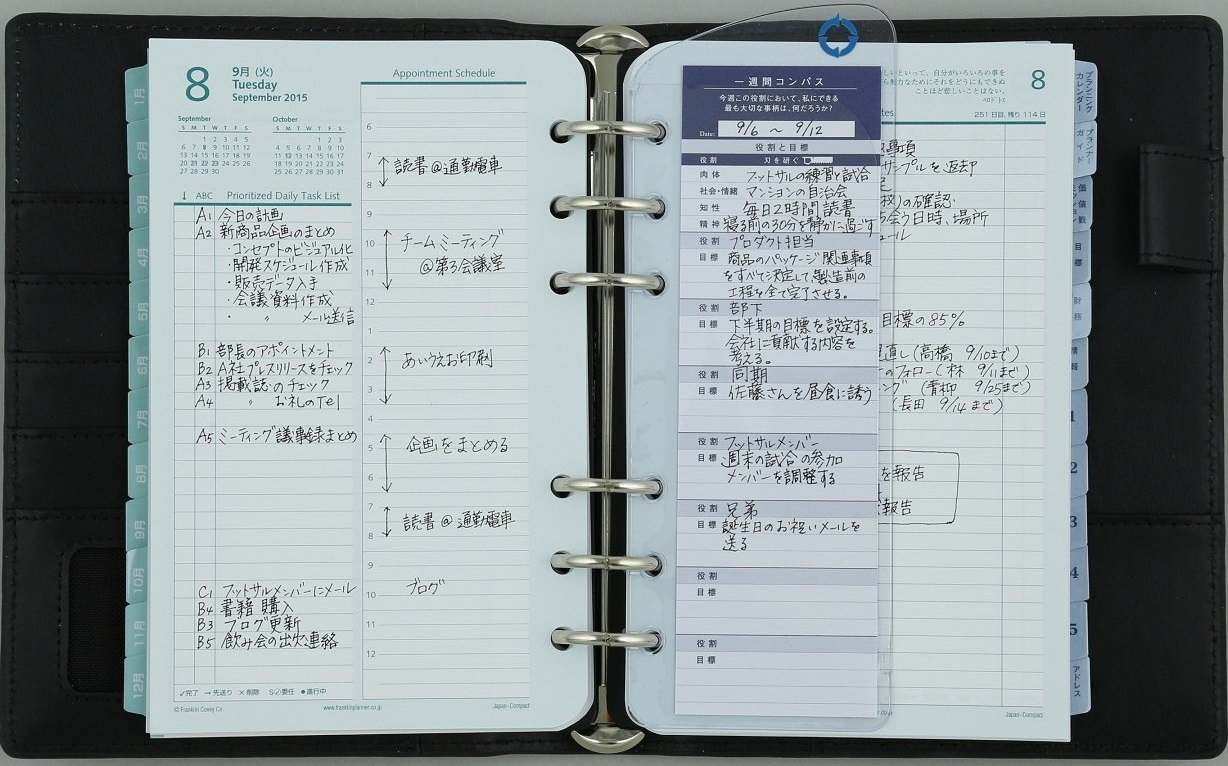 8
9月 (火)
Tuesday
September 2015
September
S M T W T F S
1 2 3 4 5
6 7 8 9 10 11 12
13 14 15 16 17 18 19
20 21 22 23 24 25 26
27 28 29 30
October
S M T W T F S
1 2 3
4 5 6 7 8 9 10
11 12 13 14 15 16 17
18 19 20 21 22 23 24
25 26 27 28 29 30 31
↓ ABC Prioritized Daily Task List
A1 今日の計画
A2 新商品企画のまとめ
・コンセプトのビジュアル化
・開発スケジュール作成
・販売データ入手
・会議資料作成
・ 〃 メール送信
B1 部長のアポイントメント
B2 A社プレスリリースをチェック
A3 掲載誌のチェック
A4 〃 お礼のTel
A5 ミーティング議事録まとめ
C1 フットサルメンバーにメール
B4 書籍購入
B3 ブログ更新
B5 飲み会の出欠連絡
✓完了 →先送り ×削除 S○委任 ●進行中
© Franklin Covey Co.
www.franklinplanner.co.jp
Japan-Compact
Appointment Schedule
6
7 読書@通勤電車
8
9
10 チームミーティング
11 @第3会議室
12
1
2 あいうえお印刷
3
4
5 企画をまとめる
6
7 読書@通勤電車
8
9
10 ブログ
11
12
一週間コンパス
今週この役割において、私にできる
最も大切な事柄は、何だろうか?
Date: 9/6 ~ 9/12
役割と目標
役割 刃を研ぐ
肉体 フットサルの練習と試合
社会・情緒 マンションの自治会
知性 毎日2時間読書
精神 寝る前の30分を静かに過ごす
役割 プロダクト担当
目標 商品のパッケージ関連事項
をすべて決定し、製造前の
工程を全て完了させる。
役割 部下
目標 下半期の目標を設定する。
会社に貢献する内容を
考える。
役割 同期
目標 佐藤さんを昼食に誘う
役割 フットサルメンバー
目標 週末の試合の参加
メンバーを調整する
役割 兄弟
目標 誕生日のお祝いメールを
送る
役割
目標
役割
目標
しいといって、自分がいろいろの事を
ら努力なためにそれをどうにもできぬ
ことほど悲しいことはない。
ヘロドトス
8
tes
251 日目, 残り 114 日
事項
サンプルを返却
の確認
会う日時、場所
ール
目標の85%
見直し(高橋 9/10まで)
のフォロー(林 9/11まで)
ング (青柳 9/25まで)
(長田 9/14まで)
を報告
報告
Japan-Compact
1月
2月
3月
4月
5月
6月
7月
8月
9月
10月
11月
12月
プランニング
カレンダー
プランナー
ガイド
価値観
目標
財務
情報
1
2
3
4
5
アドレス